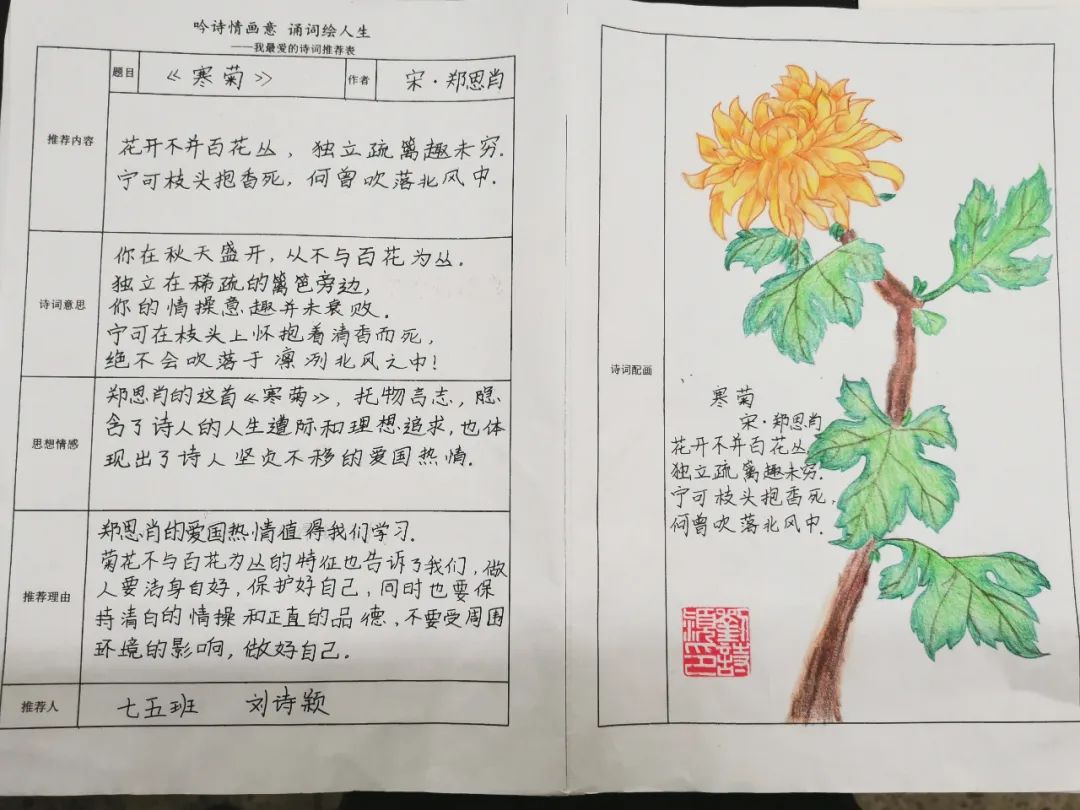 吟诗情画意 诵词绘人生
——我最爱的诗词推荐表
题目 《寒菊》 作者 宋·郑思肖
推荐内容
花开不并百花丛，独立疏篱趣未穷.
宁可枝头抱香死，何曾吹落北风中.
诗词意思
你在秋天盛开，从不与百花为丛.
独立在稀疏的篱笆旁边，
你的情操意趣并未衰败.
宁可在枝头上怀抱着清香而死，
绝不会吹落于凛冽北风之中！
思想情感
郑思肖的这首《寒菊》，托物言志，隐
含了诗人的人生遭际和理想追求，也体
现出了诗人坚贞不移的爱国热情.
推荐理由
郑思肖的爱国热情值得我们学习.
菊花不与百花为丛的特征也告诉了我们，做
人要洁身自好，保护好自己，同时也要保
持清白的情操和正直的品德，不要受周围
环境的影响，做好自己.
推荐人 七五班 刘诗颖
诗词配画
寒菊
宋·郑思肖
花开不并百花丛，
独立疏篱趣未穷.
宁可枝头抱香死，
何曾吹落北风中.
劉詩
穎印